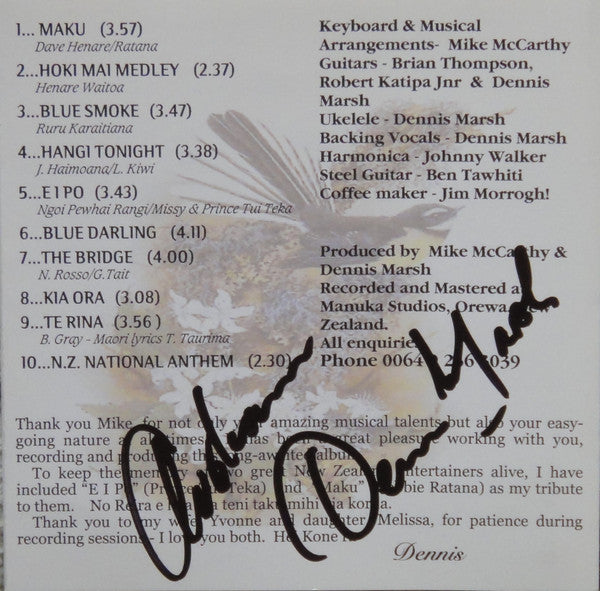 1... MAKU (3.57)
Dave Henare/Ratana
2...HOKI MAI MEDLEY (2.37)
Henare Waitoa
3...BLUE SMOKE (3.47)
Ruru Karaitiana
4...HANGI TONIGHT (3.38)
J. Haimoana/L. Kiwi
5...E I PO (3.43)
Ngoi Pewhai Rangi/Missy & Prince Tui Teka
6...BLUE DARLING (4.11)
7...THE BRIDGE (4.00)
N. Rosso/G.Tait
8...KIA ORA (3.08)
9...TE RINA (3.56 )
B. Gray - Maori lyrics T. Taurima
10...N.Z. NATIONAL ANTHEM (2.30)
Keyboard & Musical
Arrangements- Mike McCarthy
Guitars - Brian Thompson,
Robert Katipa Jnr & Dennis
Marsh
Ukelele - Dennis Marsh
Backing Vocals - Dennis Marsh
Harmonica - Johnny Walker
Steel Guitar - Ben Tawhiti
Coffee maker - Jim Morrogh!
Produced by Mike McCarthy &
Dennis Marsh
Recorded and Mastered at
Manuka Studios, Orewa, New
Zealand.
All enquiries
Phone 0064 9039
Thank you Mike, for not only your amazing musical talents but also your easy-
going nature at all times. It has been a great pleasure working with you,
recording and producing this long-awaited album.
To keep the memory of two great New Zealand entertainers alive, I have
included "E I Po" (Prince Tui Teka) and "Maku" ( bie Ratana) as my tribute
to them. No Reira e teni taku mihi kia korua.
Thank you to my wife Yvonne and daughter Melissa, for patience during
recording sessions - I love you both. Hei Kone
Dennis
Dennis Marsh